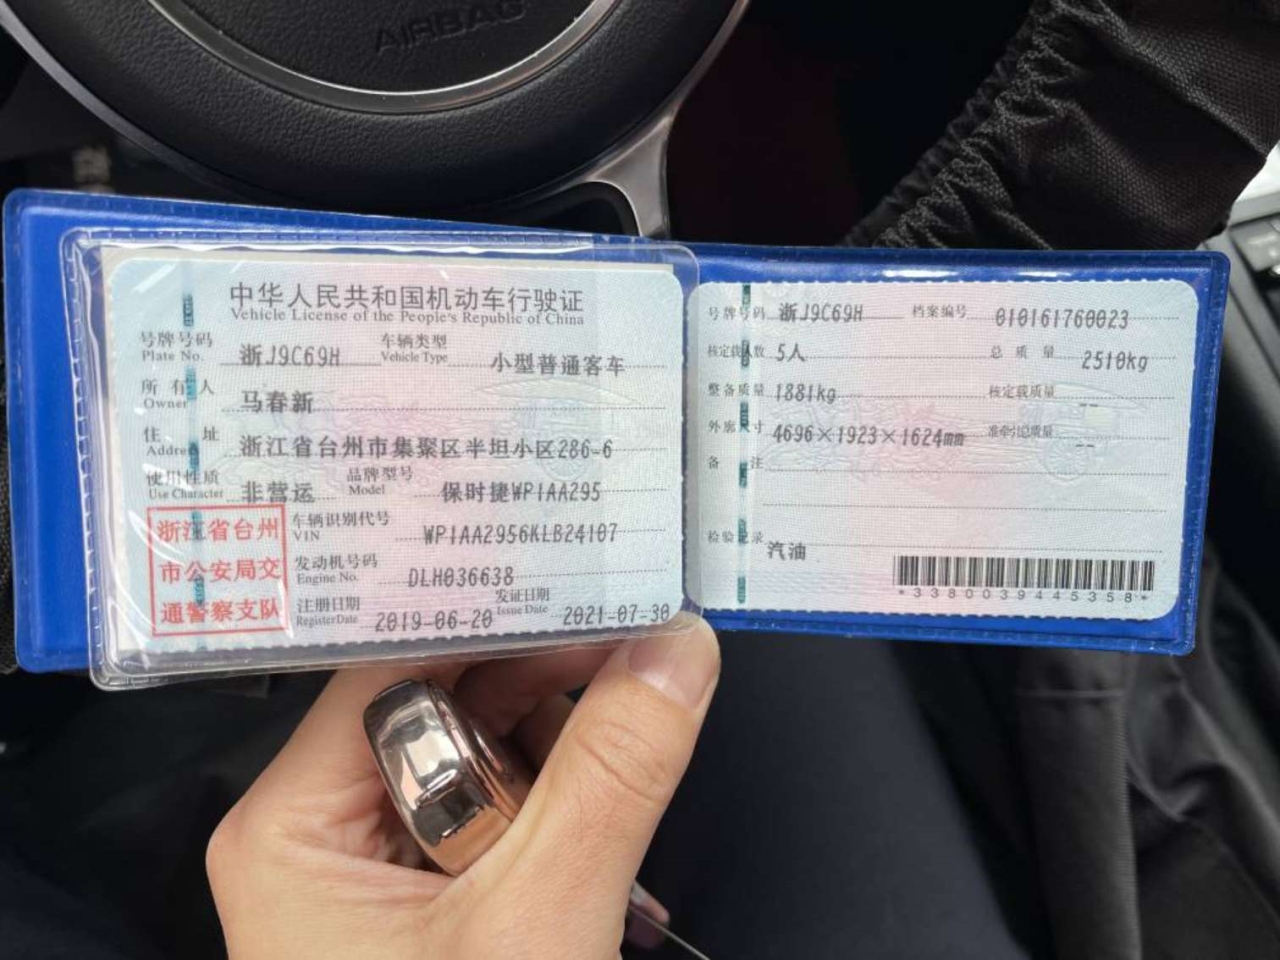 AIRBAG
中华人民共和国机动车行驶证
Vehicle License of the People's Republic of China
号牌号码 浙J9C69H 车辆类型 小型普通客车
Plate No. Vehicle Type
所有人 马春新
Owner
住址 浙江省台州市集聚区半坦小区286-6
Address
使用性质 非营运 品牌型号 保时捷WP1AA295
Use Character Model
浙江省台州
市公安局交
通警察支队
车辆识别代号 WP1AA2956KLB24107
VIN
发动机号码 DLH036638
Engine No.
注册日期 2019-06-20 发证日期 2021-07-30
Register Date Issue Date
号牌号码 浙J9C69H 档案编号 010161760023
核定载人数 5人 总质量 2510kg
整备质量 1881kg 核定载质量 --
外廓尺寸 4696×1923×1624mm 准牵引总质量 --
备注
检验记录 汽油
*3380039445358*